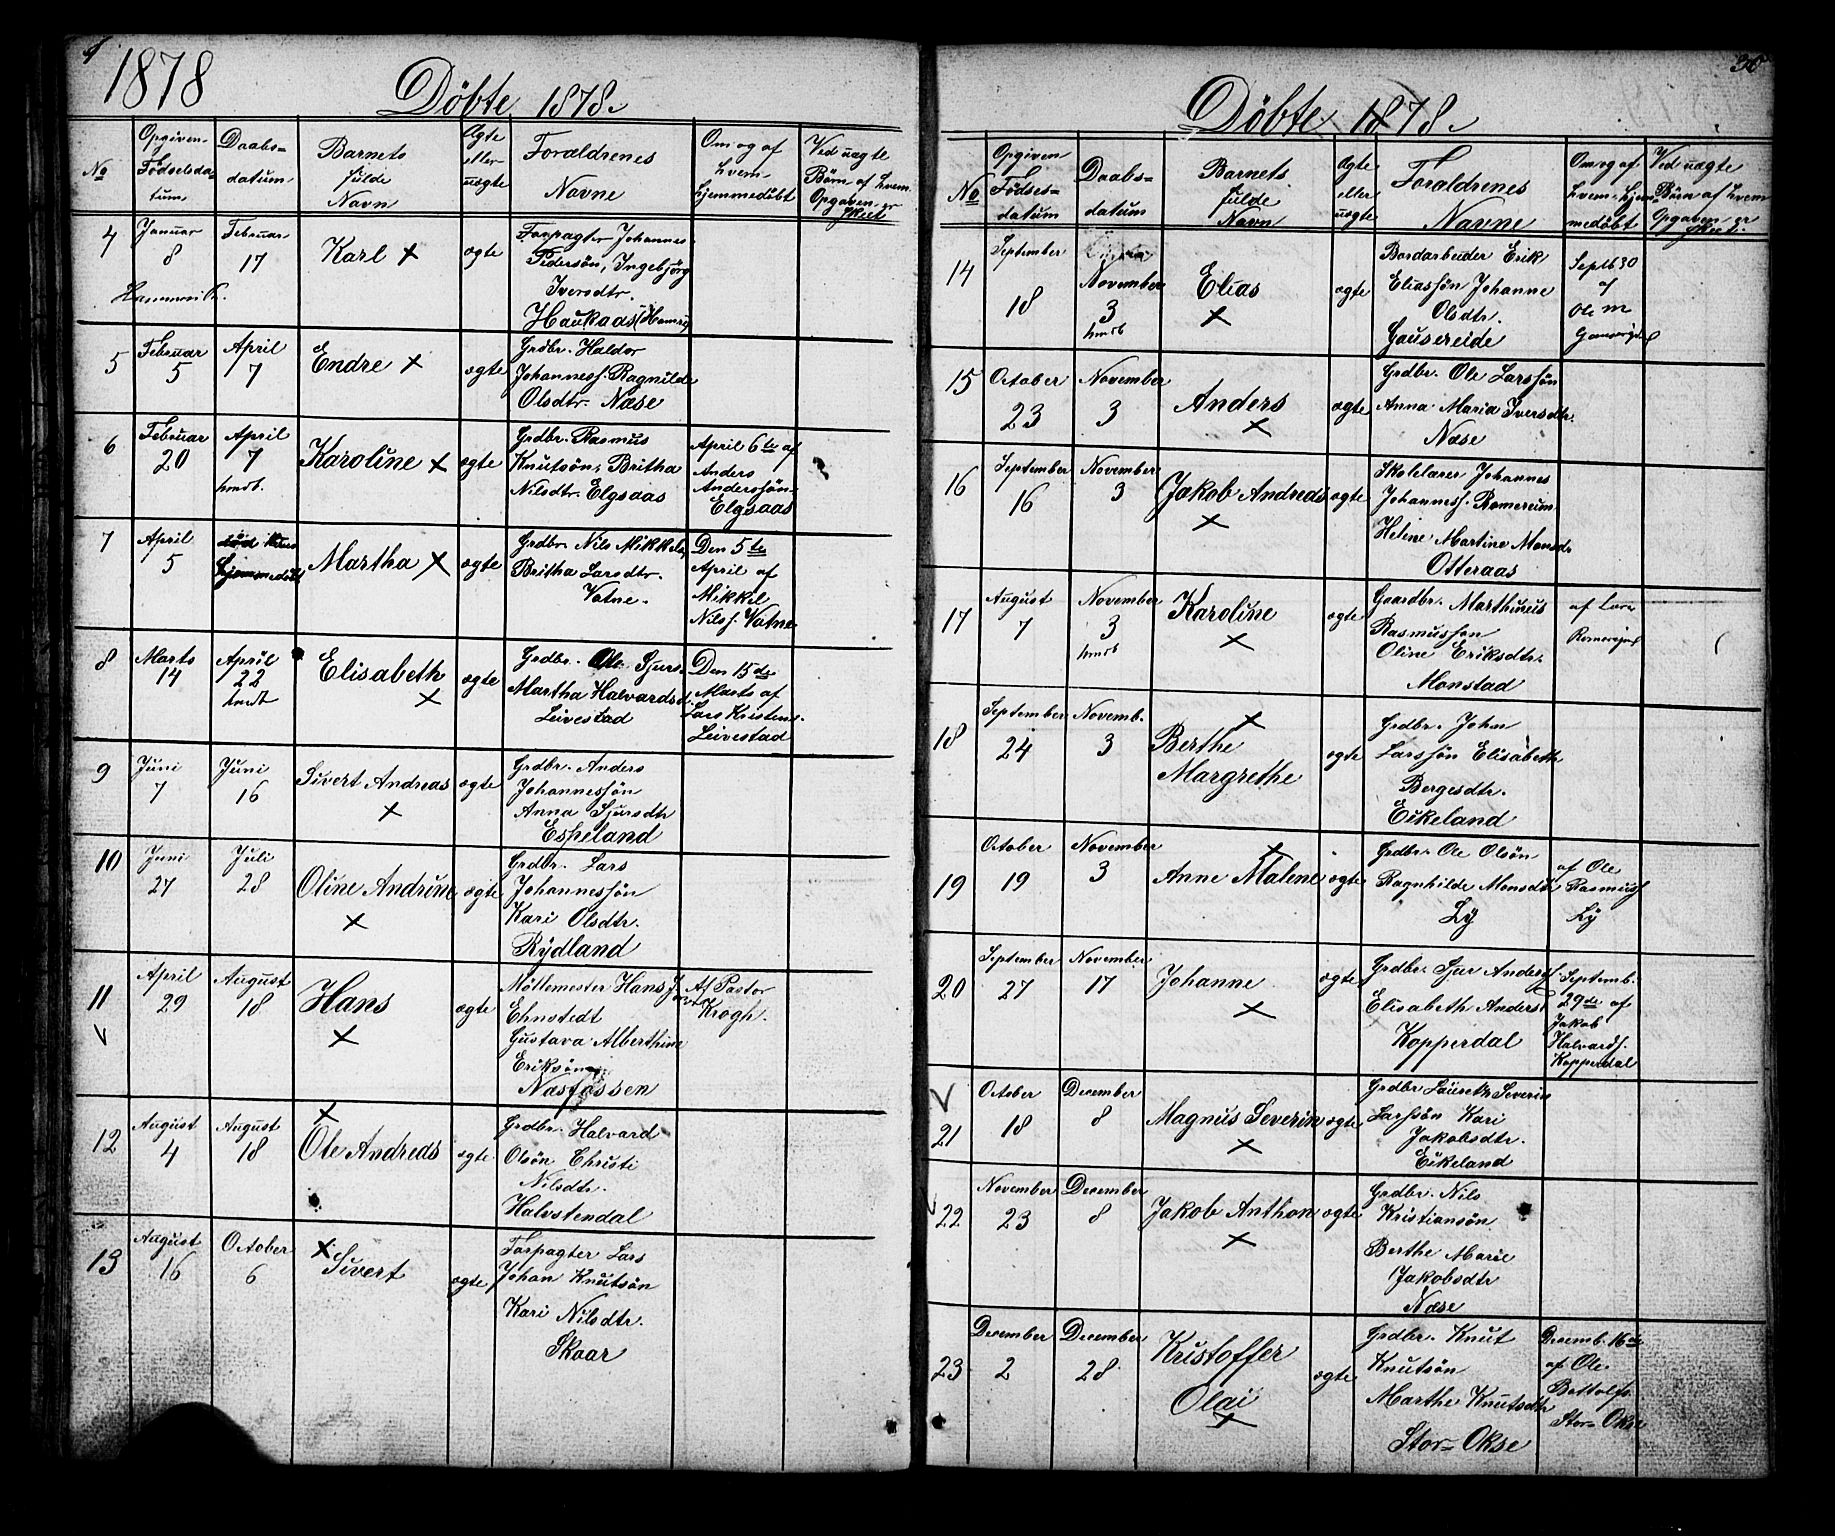 1878
Döbte 1878.
No
Opgiven
Födselsda-
tum
Daabs-
datum
Barnets
fulde
Navn
Ægte
eller
uægte
Foræaldrenes
Navne
Om og af
hvem
hjemmedöbt
Ved uægte
Börn af hvem
Opgaven er
skeet
4
Januar
8
Februar
17
Karl ×
ægte
Forpagter Johannes
Pedersön, Ingebjörg
Iversdtr.
Haukaas
5
Februar
5
April
7
Endre ×
ægte
Grdbr. Haldor
Johanness. Ragnilde
Olsdtr. Næse
6
Februar
20
April
7
hmdb.
Karoline ×
ægte
Grdbr. Rasmus
Knutsön, Britha
Nilsdtr. Elgsaas
April 6te af
Anders
Anderssön
Elgsaas
7
April
5
Martha ×
ægte
Grdbr. Nils Mikkels
Britha Larsdtr.
Vatne.
Den 5te
April af
Mikkel
Nilss. Vatne
8
Marts
14
April
22
hmdt
Elisabeth
×
ægte
Grdbr. Ole Sjurs
Martha Halvardsd
Leivestad
Den 15de
Marts af
Lars Kristens.
Leivestad
9
Juni
7
Juni
16
Sivert Andreas
×
ægte
Grdbr. Anders
Johannessön
Anna Sjursdtr
Espeland
10
Juni
27
Juli
28
Oline Andrine
×
ægte
Grdbr. Lars
Johannessön
Kari Olsdtr.
Rÿdland
11
April
29
August
18
Hans
×
ægte
Möllemester Hans
Ehnstedt
Gustava Alberthine
Eriksön
Næsfossen
Af Pastor
Krogh.
12
August
4
August
18
×
Ole Andreas
ægte
Grdbr. Halvard
Olsön Christi
Nilsdtr.
Halvstendal
13
August
16
October
6
× Sivert
ægte
Forpagter Lars
Johan Knutsön
Kari Nilsdtr.
Skaar
Döbte 1878.
No
Opgiven
Födses-
datum
Daabs-
datum
Barnets
fulde
Navn
Ægte
eller
uægte
Foraldrenes
Navne
Om og af
hvem hjem-
medöbt
Ved uægte
Börn af hvem
Opgaven er
skeet.
14
September
18
November
3
hmdb
Elias
×
ægte
Bordarbeider Erik
Eliassön Johanne
Olsdtr.
Gausereide
Septb 30
af
Ole M
15
October
23
November
3
Anders
×
ægte
Grdbr. Ole Larssön
Anna Maria Iversdtr.
Næse
16
September
16
November
3
Jakob Andreas
×
ægte
Skolelærer Johannes
Johanness. Romereim
Heline Martine Monsdr
Otteraas
17
August
7
November
3
hmdb
Karoline
×
ægte
Gaardbr. Marthinus
Rasmusson
Oline Eriksdtr.
Monstad
af Lars
18
September
24
Novemb.
3
×
Berthe
Margrethe
ægte
Grdbr. John
Larssön Elisabeth
Bergesdtr.
Eikeland
19
October
19
November
3
×
Anne Malene
ægte
Grdbr. Ole Olsön
Ragnhilde Monsdtr
Lÿ
af Ole
Rasmuss
Lÿ
20
September
27
November
17
Johanne
×
ægte
Grdbr. Sjur Anderss.
Elisabeth Anders
Kopperdal
Septemb.
29de af
Jakob
Halvards.
Kopperdal
21
October
18
December
8
Magnus Severin
×
ægte
Grdbr Laurets Severin
Larssön Kari
Jakobsdtr.
Eikeland
22
November
23
December
8
Jakob Anthon
×
ægte
Grdbr. Nils
Kristiansön
Berthe Marie
Jakobsdtr
Næse
23
December
2
December
28
Kristoffer
Olai
×
ægte
Grdbr. Knut
Knutsön
Marthe Knutsdtr
Stor-Okse
Decemb. 16de
af Ole
Bottolfs.
Stor-Okse